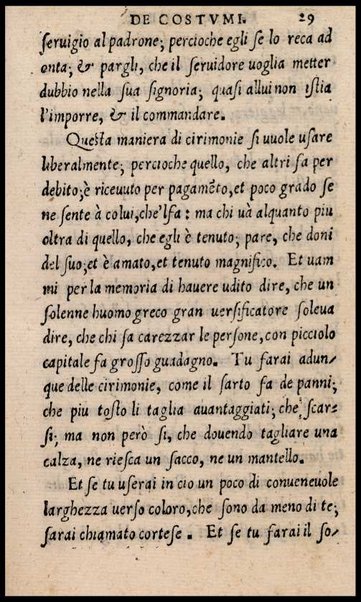 DE COSTVMI. 29
seruigio al padrone; percioche egli se lo reca ad
onta; & pargli, che il seruidore uoglia metter
dubbio nella sua signoria; quasi allui non istia
l'imporre, & il commandare.
Questa maniera di cirimonie si uuole usare
liberalmente; percioche quello, che altri fa per
debito; è riceuuto per pagamẽto, et poco grado se
ne sente à colui, che'lfa: ma chi uà alquanto piu
oltra di quello, che egli è tenuto; pare, che doni
del suo; et è amato, et tenuto magnifico. Et uam
mi per la memoria di hauere udito dire, che un
solenne huomo greco gran uersificatore soleua
dire, che chi sa carezzar le persone, con picciolo
capitale fa grosso guadagno. Tu farai adun=
que delle cirimonie, come il sarto fa de panni;
che piu tosto li taglia auantaggiati; che scar=
si; ma non però si, che douendo tagliare una
calza, ne riesca un sacco, ne un mantello.
Et se tu userai in cio un poco di conueneuole
larghezza uerso coloro, che sono da meno di te;
sarai chiamato cortese. Et se tu farai il so=